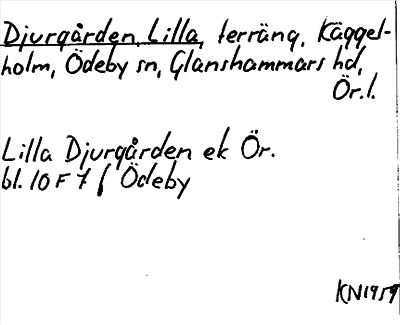 Djurgården, Lilla, terräng, Käggel-
holm, Ödeby sn, Glanshammars hd,
Ör.l.
Lilla Djurgården ek Ör.
bl. 10 F 7 f Ödeby
KN1959